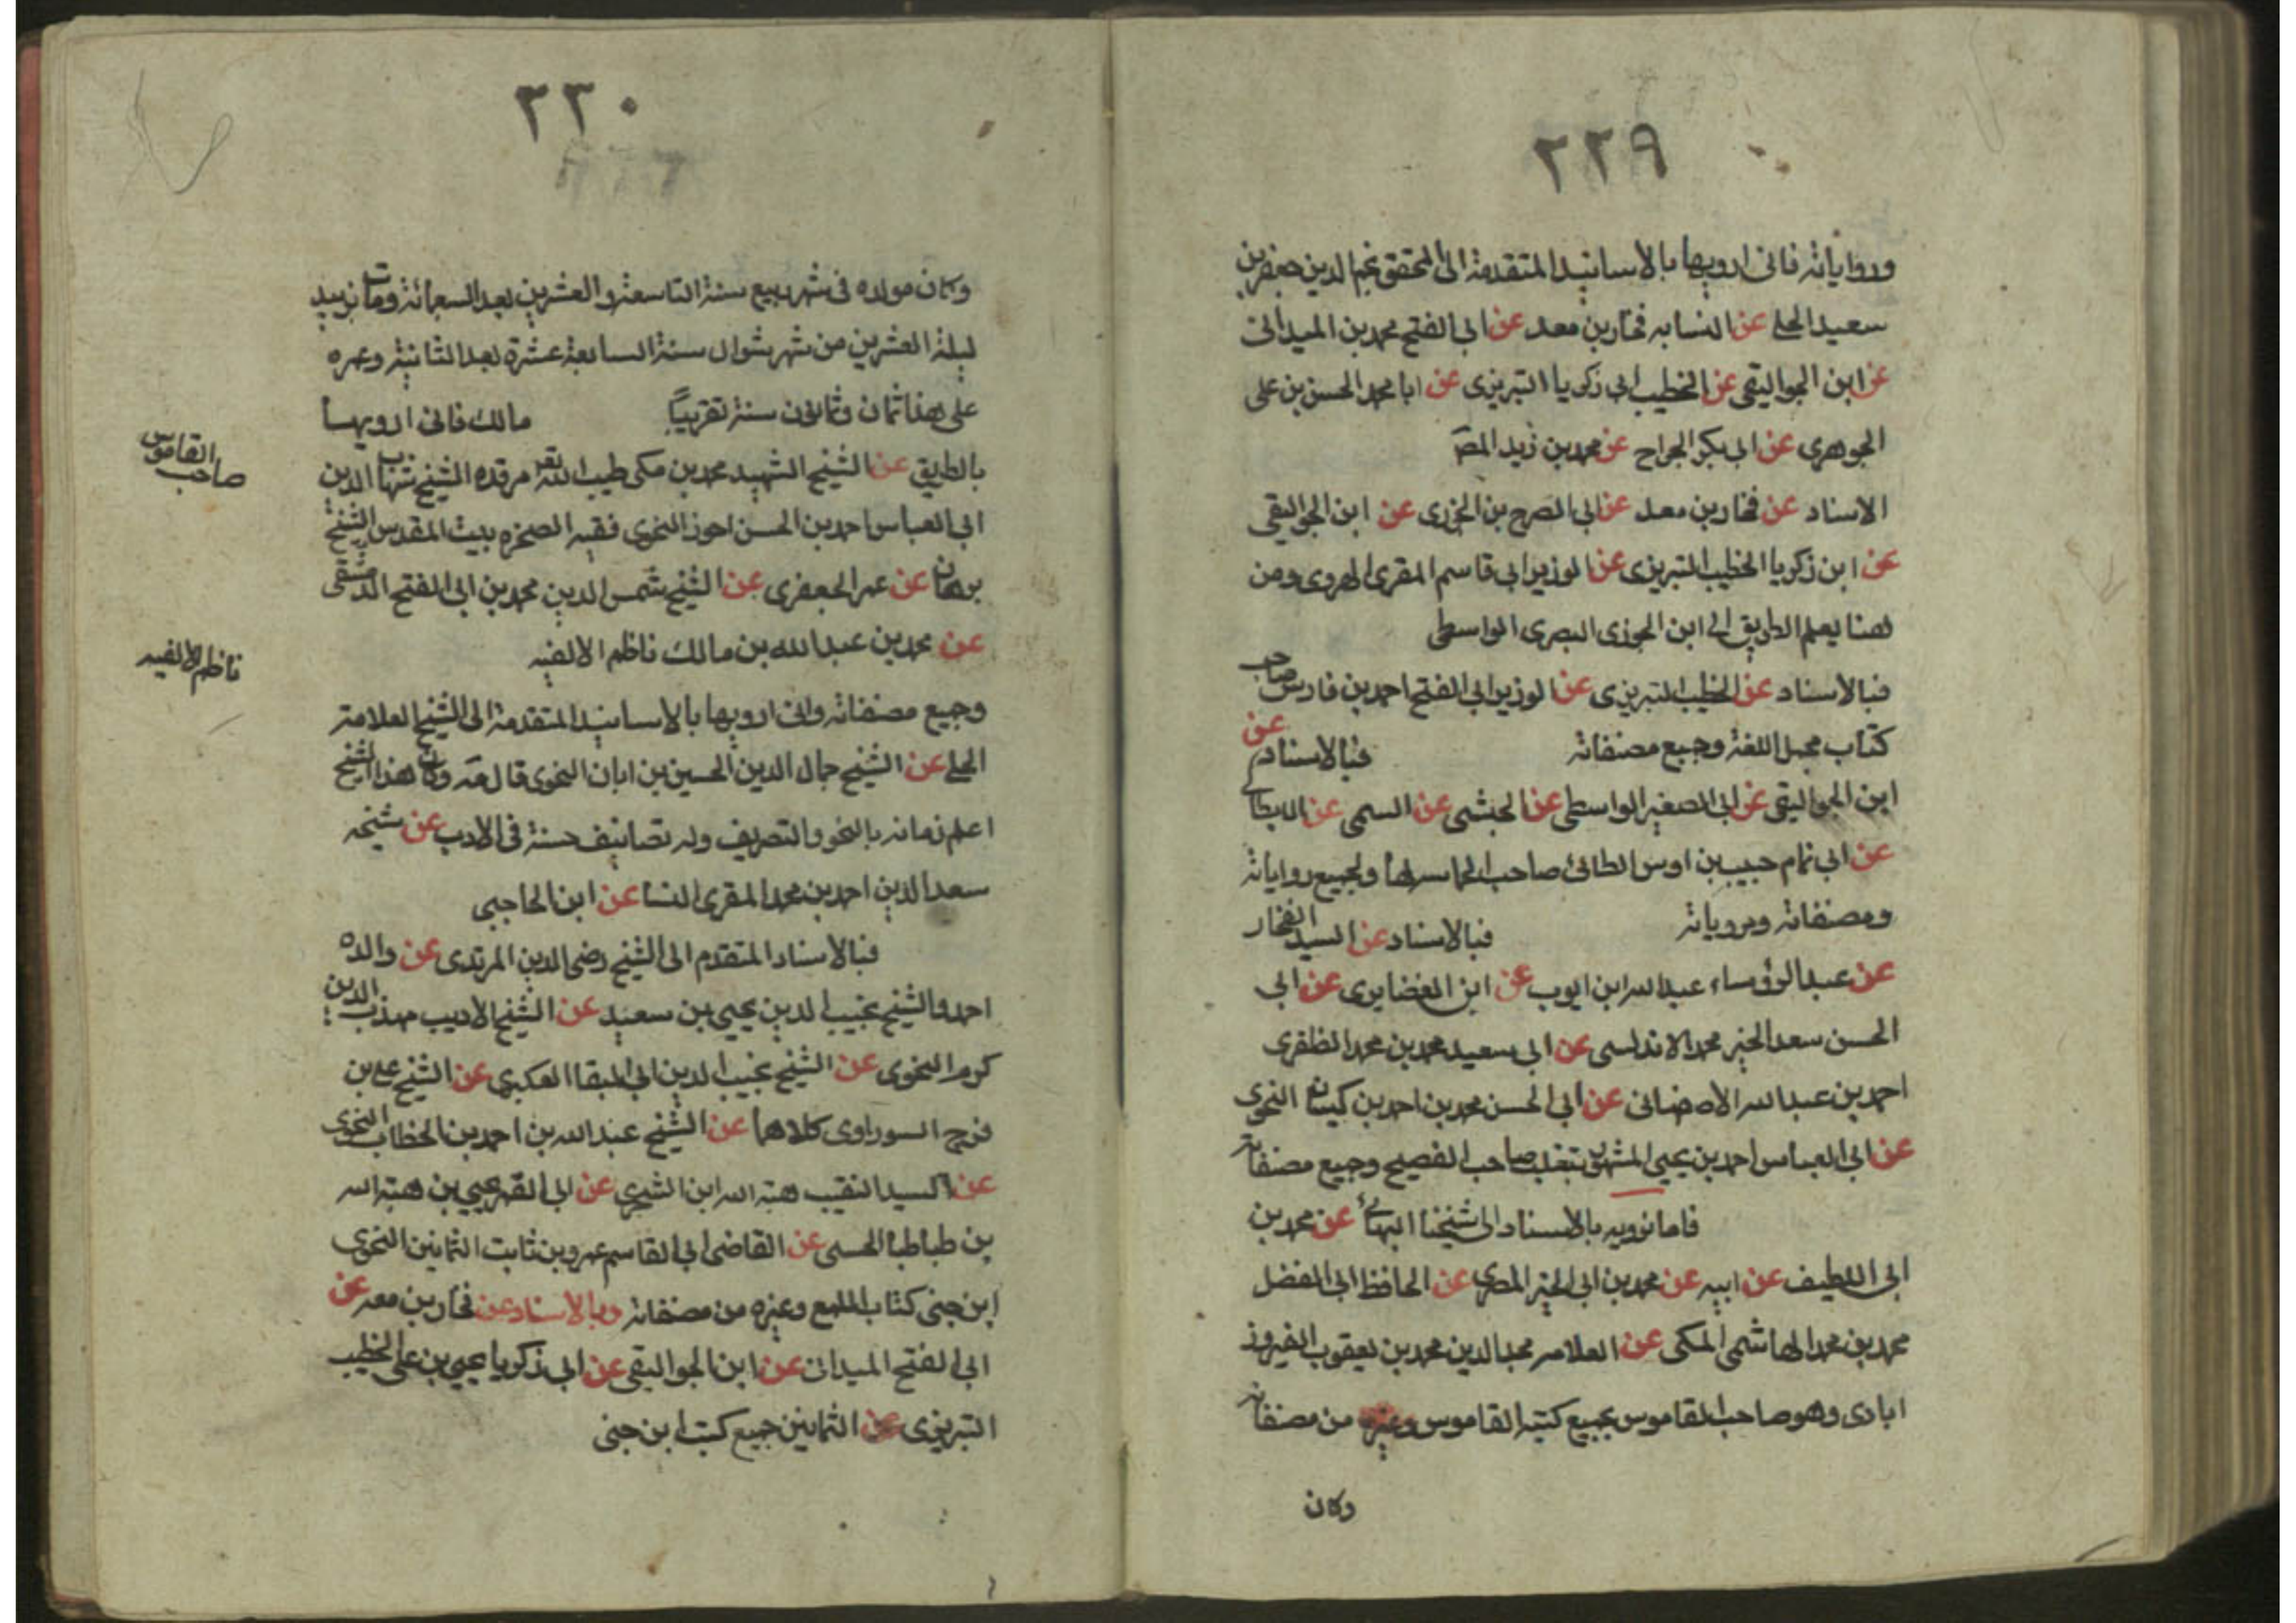 ٢٢٩
ورواياته فانى ارويها بالاسانيد المتقدمة الى المحقق نجم الدين جعفر بن
سعيد الحلي عن النسابه فخار بن معد عن ابي الفتح محمد بن الميدانى
عن ابن الجواليقى عن الخطيب ابى زكريا التبريزى عن ابا محمد الحسن بن على
الجوهرى عن ابى بكر الجراح عن محمد بن زيد المص
الاسناد عن فخار بن معد عن ابى الفرج بن الجوزى عن ابن الجواليقى
عن ابن زكريا الخطيب التبريزى عن الوزير ابى قاسم المقرى الهروى ومن
هنا يعلم الطريق الى ابن الجوزى البصرى الواسطى
فبالاسناد عن الخطيب التبريزى عن الوزير ابى الفتح احمد بن فارس صاحب
كتاب مجمل اللغة وجميع مصنفاته فبالاسناد عن
ابن الجواليقى عن ابى الصغير الواسطى عن الحبشى عن السمى عن
عن ابى تمام حبيب بن اوس الطائى صاحب الحماسه لها ولجميع رواياته
ومصنفاته ومروياته فبالاسناد عن السيد الفخار
عن عبد الرؤساء عبد الله ابن ايوب عن ابن الغضايرى عن ابى
الحسن سعد الخير محمد الاندلسى عن ابى سعيد محمد بن محمد الظفرى
احمد بن عبد الله الاصفهانى عن ابى الحسن محمد بن احمد بن كيسان النحوى
عن ابى العباس احمد بن يحيى المشهور بثعلب صاحب الفصيح وجميع مصنفاته
فاما نرويه بالاسناد الى شيخنا البهائى عن محمد بن
ابى اللطيف عن ابيه عن محمد بن ابى الخير المصرى عن الحافظ ابى الفضل
محمد بن محمد الهاشمى المكى عن العلامه مجد الدين محمد بن يعقوب الفيروز
ابادى وهو صاحب القاموس بجميع كتبه القاموس وغيره من مصنفاته
وكان
٢٣٠
وكان مولده فى شهر ربيع سنة التاسعة والعشرين بعد السبعمائة ومات بزبيد
ليلة العشرين من شهر شوال سنة السابعة عشرة بعد الثانية وعمره
على هذا ثمان وثمانون سنة تقريبًا مالك فانى ارويها
بالطريق عن الشيخ الشهيد محمد بن مكى طيب الله تعه مرقده الشيخ شهاب الدين
ابى العباس احمد بن الحسن احوز النحوى فقيه الصخره ببيت المقدس الشيخ
برهان عن عمر الجعفرى عن الشيخ شمس الدين محمد بن ابى الفتح الدمشقى
عن محمد بن عبد الله بن مالك ناظم الالفيه
وجميع مصنفاته وانى ارويها بالاسانيد المتقدمة الى الشيخ العلامة
الحلي عن الشيخ جمال الدين الحسين بن ابان النحوى قال وكان هذا الشيخ
اعلم زمانه بالنحو والتصريف وله تصانيف حسنة فى الادب عن شيخه
سعد الدين احمد بن محمد المقرى النسا عن ابن الحاجبى
فبالاسناد المتقدم الى الشيخ رضى الدين المرتدى عن والده
احمد والشيخ نجيب الدين يحيى بن سعيد عن الشيخ الاديب مهذب الدين
كرم النحوى عن الشيخ نجيب الدين ابى البقا العكبرى عن الشيخ على بن
فرج السوراوى كلاهما عن الشيخ عبد الله بن احمد بن الخطاب النحوى
عن السيد النقيب هبة الله ابن الشجرى عن ابى القمر يحيى بن هبة الله
بن طباطبا الحسنى عن القاضى ابى القاسم عمرو بن ثابت الثمانين النحوى
ابن جنى كتاب اللمع وغيره من مصنفاته وبالاسناد عن فخار بن معد عن
ابى الفتح الميدان عن ابن الجواليقى عن ابى زكريا يحيى بن على الخطيب
التبريزى عن الثمانين جميع كتب ابن جنى
صاحب القاموس
ناظم الالفيه